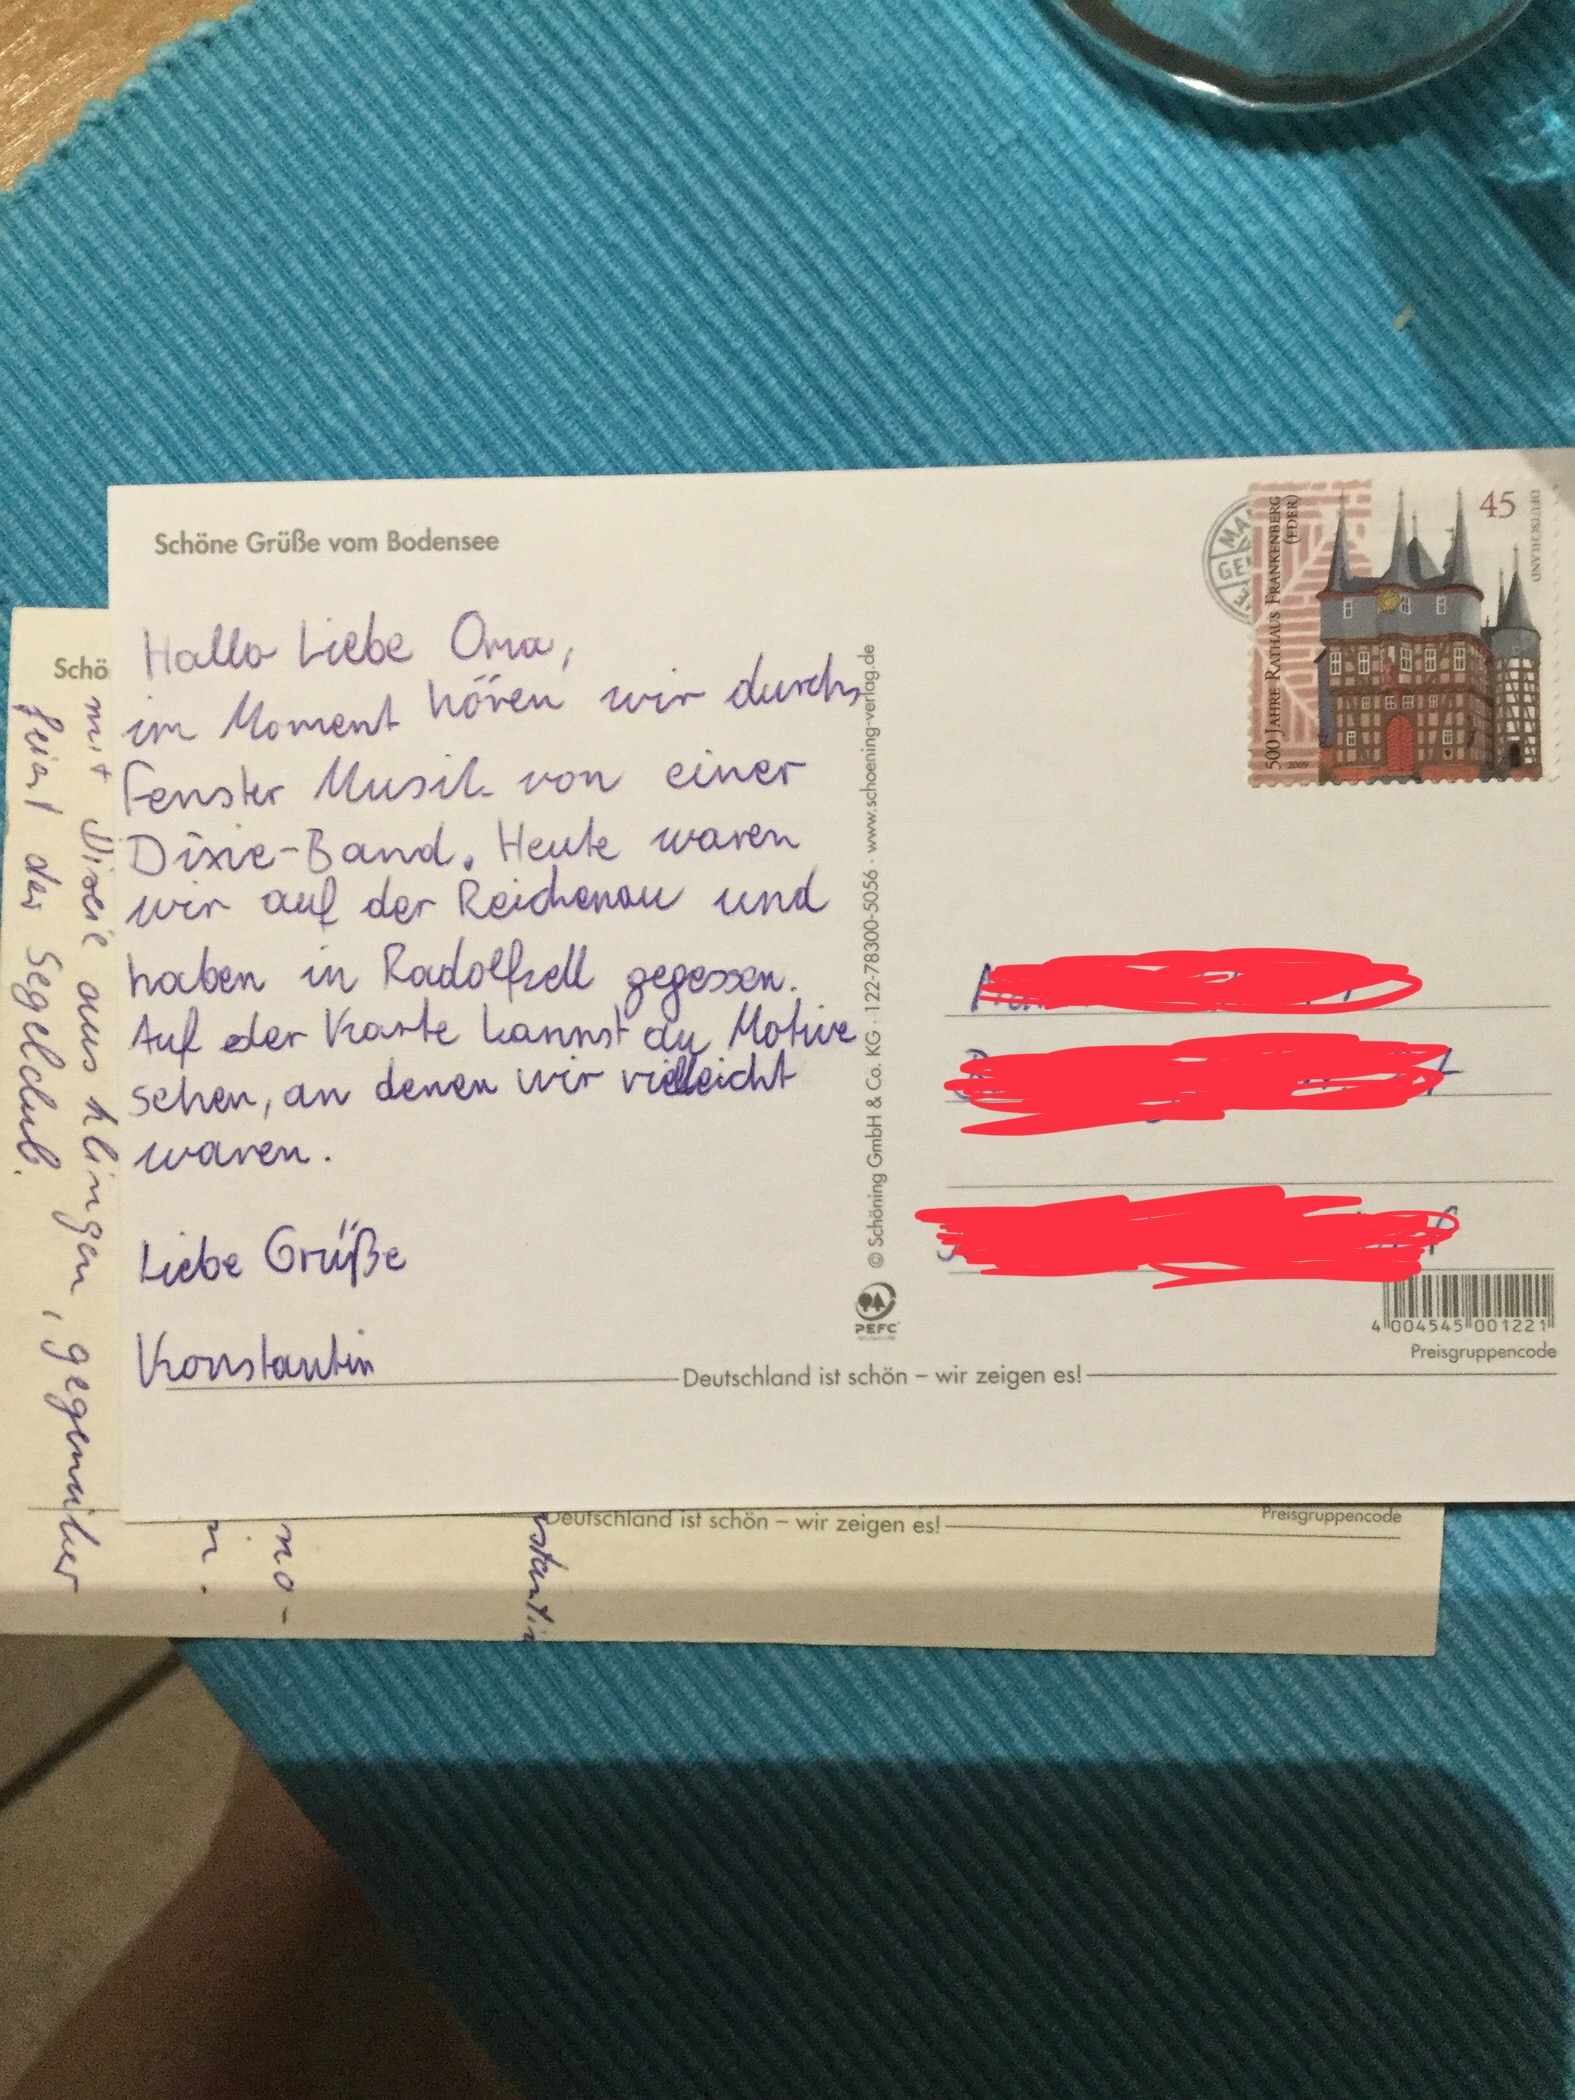 Schöne Grüße vom Bodensee
Hallo Liebe Oma,
im Moment hören wir durchs
Fenster Musik von einer
Dixie-Band. Heute waren
wir auf der Reichenau und
haben in Radolfzell gegessen.
Auf der Karte kannst du Motive
sehen, an denen wir vielleicht
waren.
Liebe Grüße
Konstantin
Deutschland ist schön – wir zeigen es!
© Schöning GmbH & Co. KG · 122-78300-5056 · www.schoening-verlag.de
PEFC
500 JAHRE RATHAUS FRANKENBERG
(EDER)
2009
45
DEUTSCHLAND
4 004545 001221
Preisgruppencode
Schö
mit Dixie ausklingen, gegenüber
feiert der Segelclub.
no-
n.
stantin
Deutschland ist schön – wir zeigen es!
Preisgruppencode